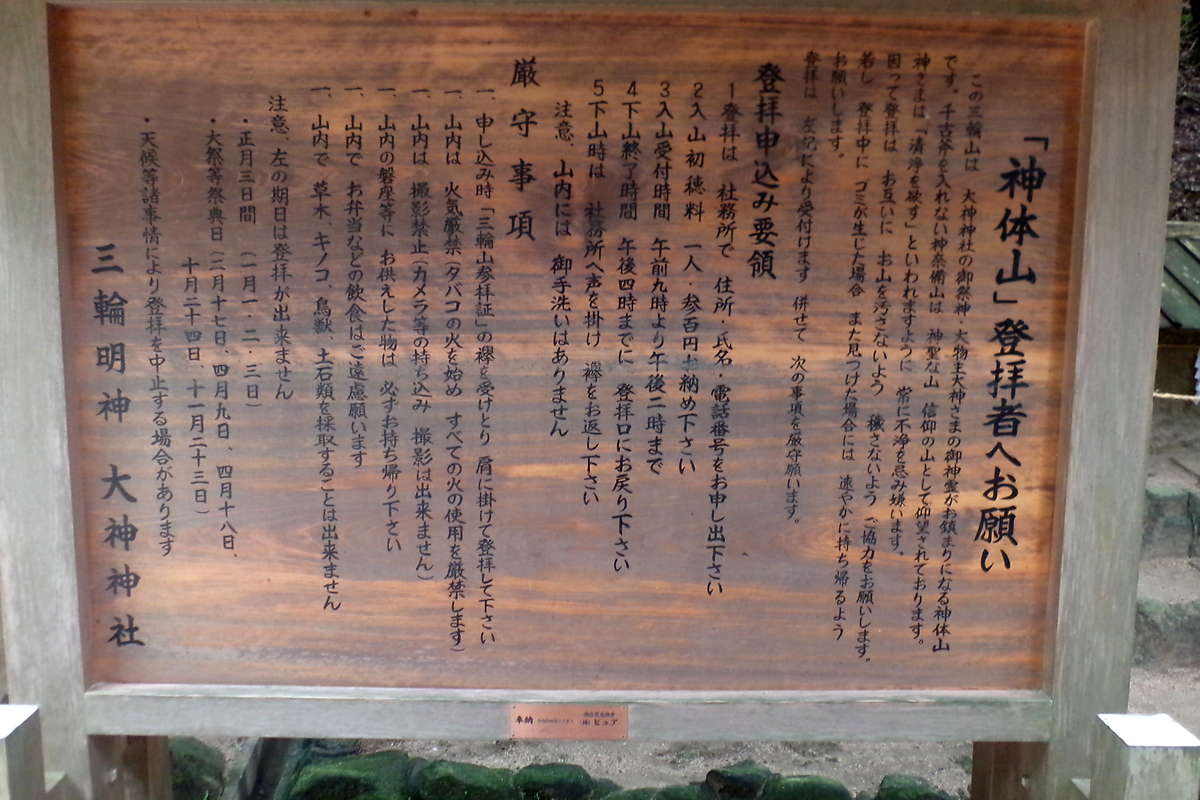 「神体山」登拝者へお願い
この三輪山は 大神神社の御祭神・大物主大神さまの御神霊がお鎮まりになる神体山
です。千古斧を入れない神奈備山は 神聖な山 信仰の山として仰望されております。
神さまは「清浄を欲す」といわれますように 常に不浄を忌み嫌います。
因って登拝は お互いに お山を汚さないよう 穢さないよう ご協力をお願いします。
若し 登拝中に ゴミが生じた場合 また見つけた場合には 速やかに持ち帰るよう
お願いします。
登拝は 左記により受付けます 併せて 次の事項を厳守願います。
登拝申込み要領
1 登拝は 社務所で 住所・氏名・電話番号をお申し出下さい
2 入山初穂料 一人・参百円お納め下さい
3 入山受付時間 午前九時より午後二時まで
4 下山終了時間 午後四時までに 登拝口にお戻り下さい
5 下山時は 社務所へ声を掛け 襷をお返し下さい
注意、山内には 御手洗いはありません
厳守事項
一、申し込み時「三輪山参拝証」の襷を受けとり 肩に掛けて登拝して下さい
一、山内は 火気厳禁(タバコの火を始め すべての火の使用を厳禁します)
一、山内は 撮影禁止(カメラ等の持ち込み 撮影は出来ません)
一、山内の磐座等に お供えした物は 必ずお持ち帰り下さい
一、山内で お弁当などの飲食はご遠慮願います
一、山内で 草木、キノコ、鳥獣、土石類を採取することは出来ません
注意、左の期日は登拝が出来ません
・正月三日間 (一月一・二・三日)
・大祭等祭典日(二月十七日、四月九日、四月十八日、
十月二十四日、十一月二十三日)
・天候等諸事情により登拝を中止する場合があります
三輪明神 大神神社
奉納
(株)ピュア